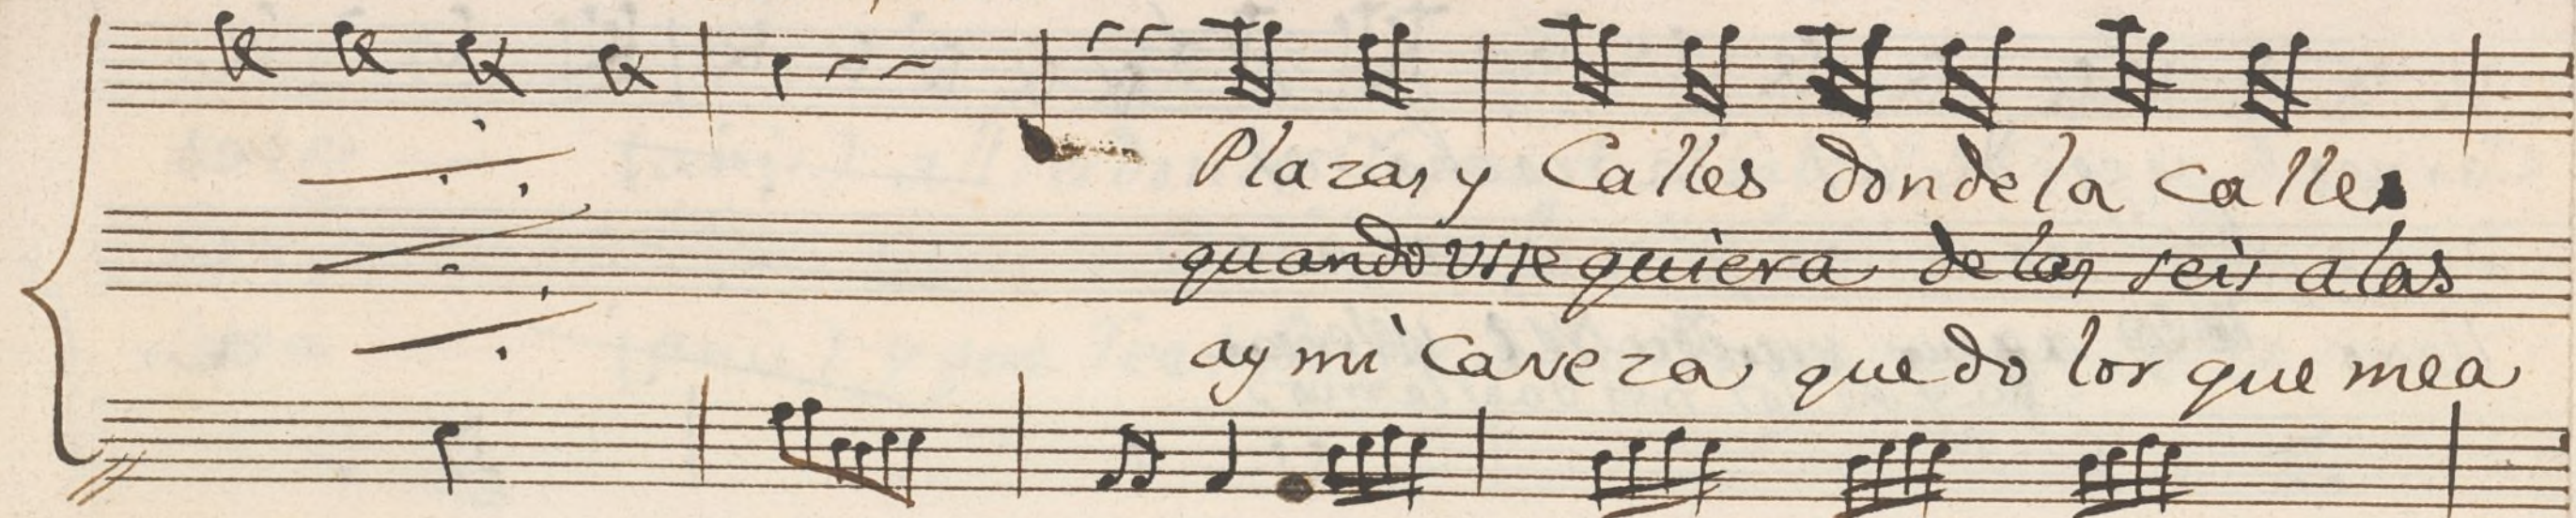 Plazas y Calles donde la calle
quando usse quiera de las seis a las
ay mi Caveza que dolor que mea